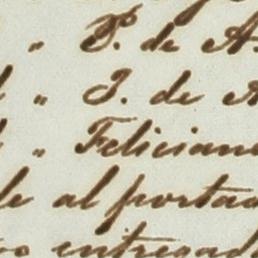 " P. de A
" J. de A
" Felician
le al portad
entregad